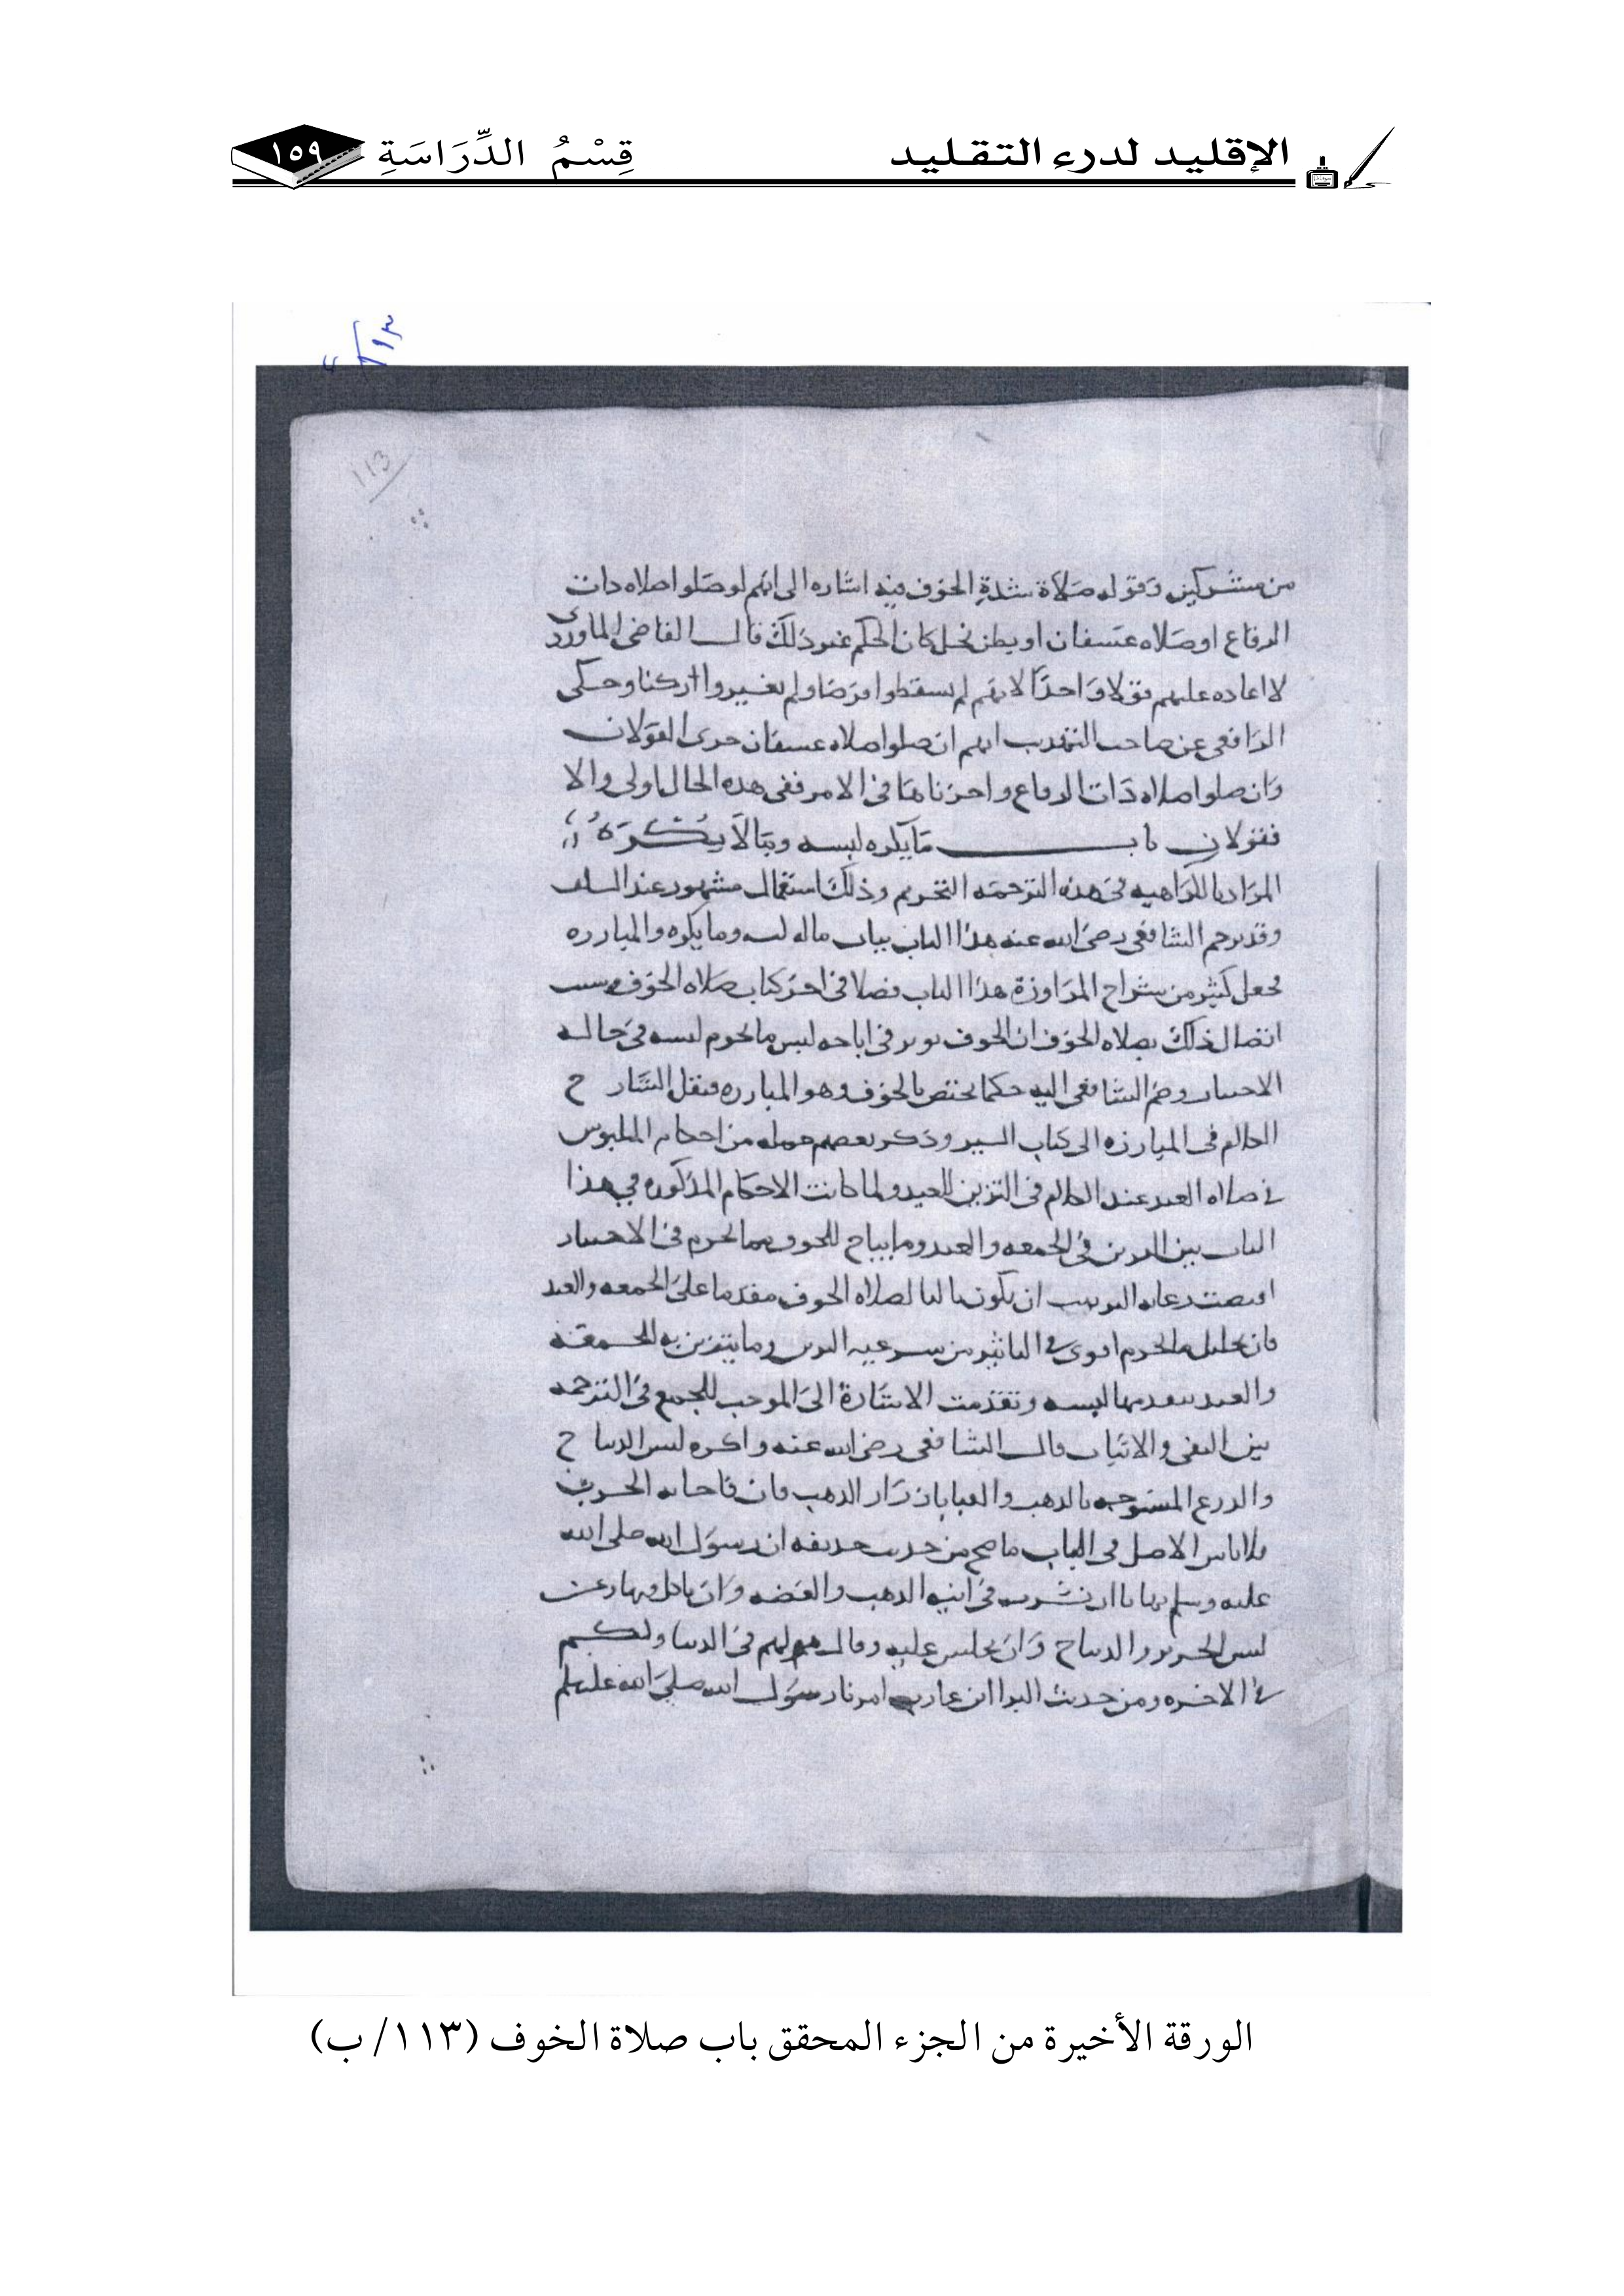 الإقليد لدرء التقليد
قِسْمُ الدِّرَاسَةِ
١٥٩
١١٣
113
من مشركين وقوله صلاة شدة الخوف فيه اشاره الى انهم لو صلوا صلاه دات
الرقاع او صلاه عسفان او بطن نخل كان الحكم غير ذلك قال القاضى الماوردى
لا اعاده عليهم قولا واحدا لانهم لم يسقطوا فرضا ولم يغيروا ركنا وحكى
الرافعى عن صاحب التهذيب انهم ان صلوا صلاه عسفان جرى القولان
وان صلوا صلاه ذات الرقاع واجزناها فى الامر ففى هذه الحال اولى والا
فقولان باب ما يكره لبسه وما لا يكره
المراد بالكراهيه فى هذه الترجمه التحريم وذلك استعمال مشهور عند السلف
وقد ترجم الشافعى رضى الله عنه هذا الباب بباب ماله لبسه وما يكره والمبارزه
فجعل كثير من شراح المراوزة هذا الباب فصلا فى اخر كتاب صلاه الخوف وسبب
اتصال ذلك بصلاه الخوف ان الخوف يوثر فى اباحه لبس ما يحرم لبسه فى حاله
الاختيار وضم الشافعى اليه حكما يختص بالخوف وهو المبارزه فنقل الشارح
الكلام فى المبارزه الى كتاب السير وذكر بعضهم جمله من احكام الملبوس
فى صلاه العيد عند الكلام فى التزين للعيد ولما كانت الاحكام المذكوره فى هذا
الباب بين التزين فى الجمعه والعيد وما يباح للخوف مما يحرم فى الاختيار
اقتضت رعايه الترتيب ان يكون تاليا لصلاه الخوف مقدما على الجمعه والعيد
فان تحليل ما يحرم اقوى فى التاثير من شرعيه التزين وما يتزين به للجمعة
والعيد لبسه وتقدمت الاشارة الى الموجب للجمع فى الترجمه
بين النفى والاثبات قال الشافعى رضى الله عنه واكره لبس الديباح
والدرع المنسوجه بالذهب والقبا بازرار الذهب فان فاجاته الحرب
فلا باس الاصل فى الباب ما صح من حديث حذيفه ان رسول الله صلى الله
عليه وسلم نهانا ان نشرب فى انيه الذهب والفضه وان ناكل فيها وعن
لبس الحرير والديباح وان نجلس عليه وقال هو لهم فى الدنيا ولكم
فى الاخره ومن حديث البرا ابن عازب امرنا رسول الله صلى الله عليه وسلم
الورقة الأخيرة من الجزء المحقق باب صلاة الخوف (١١٣/ ب)